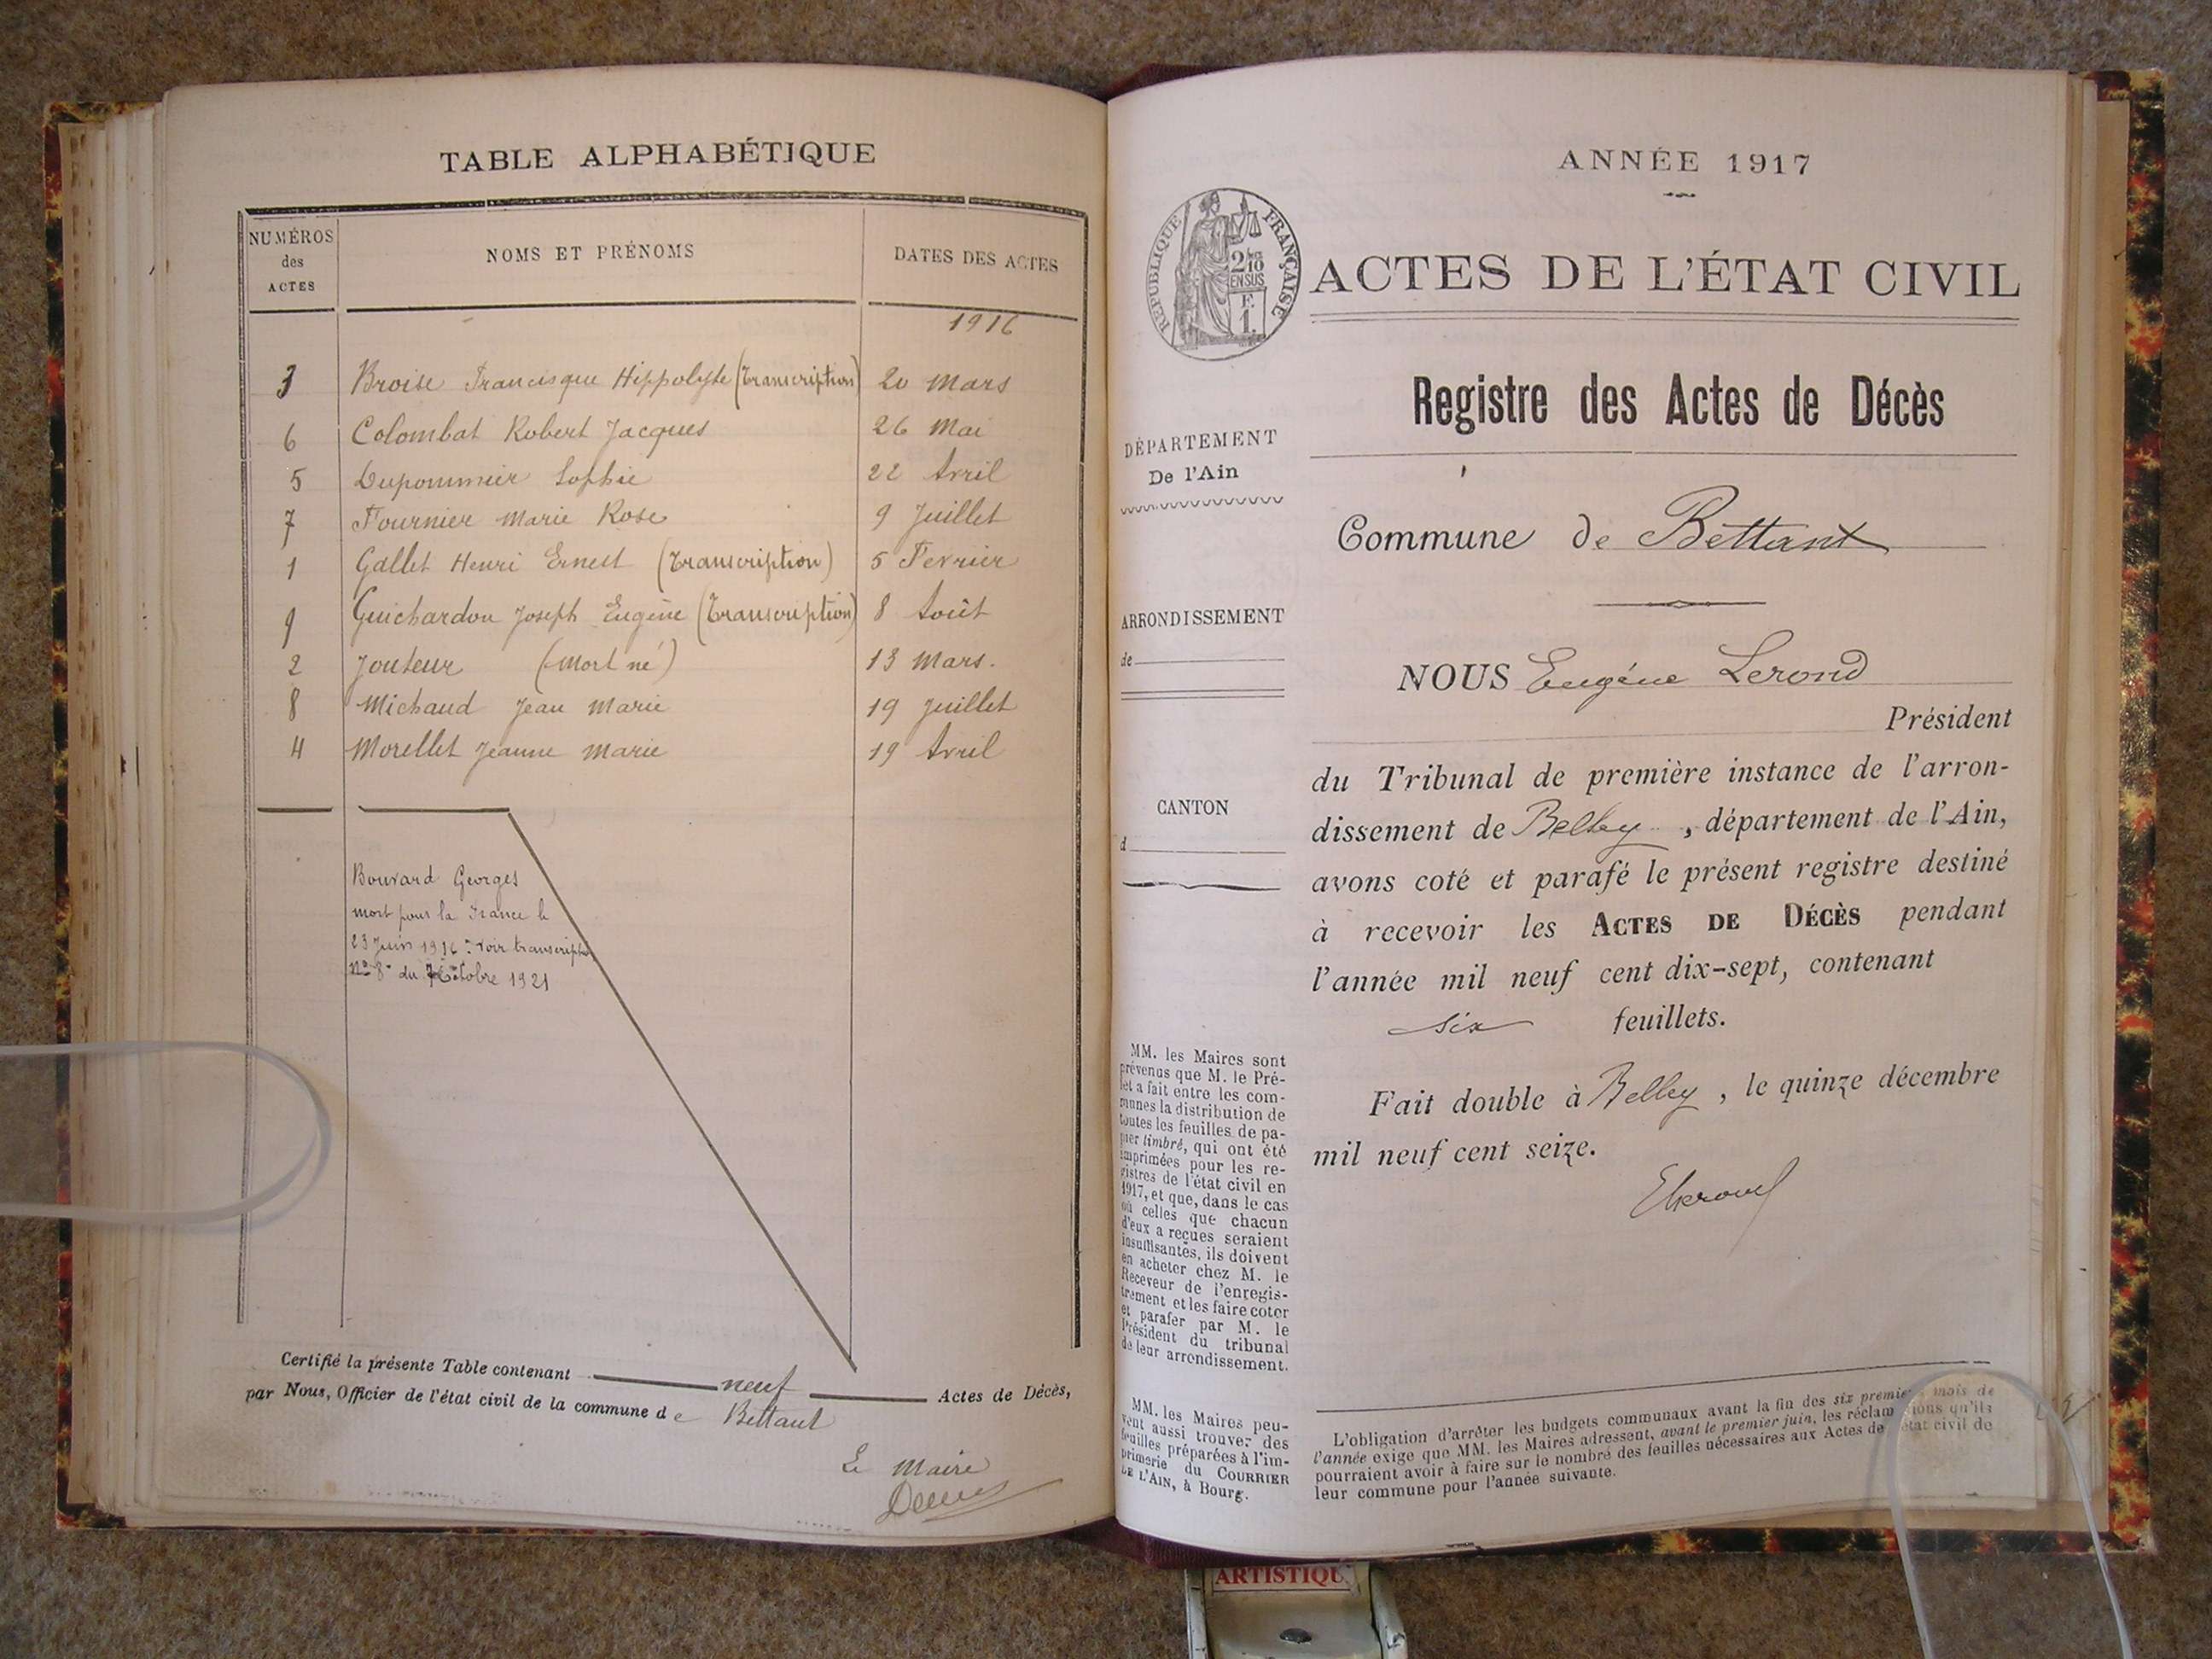 TABLE ALPHABÉTIQUE
NUMÉROS des ACTES NOMS ET PRÉNOMS DATES DES ACTES
1916
3 Broise Francisque Hippolyte (Transcription) 20 Mars
6 Colombat Robert Jacques 26 Mai
5 Dupommier Sophie 22 Avril
7 Fournier Marie Rose 9 Juillet
1 Gallet Henri Ernest (Transcription) 5 Fevrier
9 Guichardon Joseph Eugène (Transcription) 8 Août
2 Jouteur (Mort né) 13 Mars.
8 Michaud Jean Marie 19 Juillet
4 Morellet Jeanne Marie 19 Avril
Bouvard Georges
mort pour la France le
23 Juin 1916 : voir transcription
No 8 du Octobre 1921
Certifié la présente Table contenant neuf Actes de Décès,
par Nous, Officier de l'état civil de la commune de Bettant
Le Maire
ANNÉE 1917
RÉPUBLIQUE FRANÇAISE
2/10
EN SUS
F.
1.
ACTES DE L'ÉTAT CIVIL
Registre des Actes de Décès
DÉPARTEMENT
De l'Ain
Commune de Bettant
ARRONDISSEMENT
de
CANTON
d
NOUS Eugéne Lerond
Président
du Tribunal de première instance de l'arron-
dissement de Belley, département de l'Ain,
avons coté et parafé le présent registre destiné
à recevoir les ACTES DE DÉCÈS pendant
l'année mil neuf cent dix-sept, contenant
six feuillets.
Fait double à Belley, le quinze décembre
mil neuf cent seize.
MM. les Maires sont
prévenus que M. le Pré-
fet a fait entre les com-
munes la distribution de
toutes les feuilles de pa-
pier timbré, qui ont été
imprimées pour les re-
gistres de l'état civil en
1917, et que, dans le cas
où celles que chacun
d'eux a reçues seraient
insuffisantes, ils doivent
en acheter chez M. le
Receveur de l'enregis-
trement et les faire coter
et parafer par M. le
Président du tribunal
de leur arrondissement.
MM. les Maires peu-
vent aussi trouver des
feuilles préparées à l'im-
primerie du COURRIER
DE L'AIN, à Bourg.
L'obligation d'arrêter les budgets communaux avant la fin des six premiers mois de
l'année exige que MM. les Maires adressent, avant le premier juin, les réclamations qu'ils
pourraient avoir à faire sur le nombre des feuilles nécessaires aux Actes de état civil de
leur commune pour l'année suivante.
ARTISTIQU